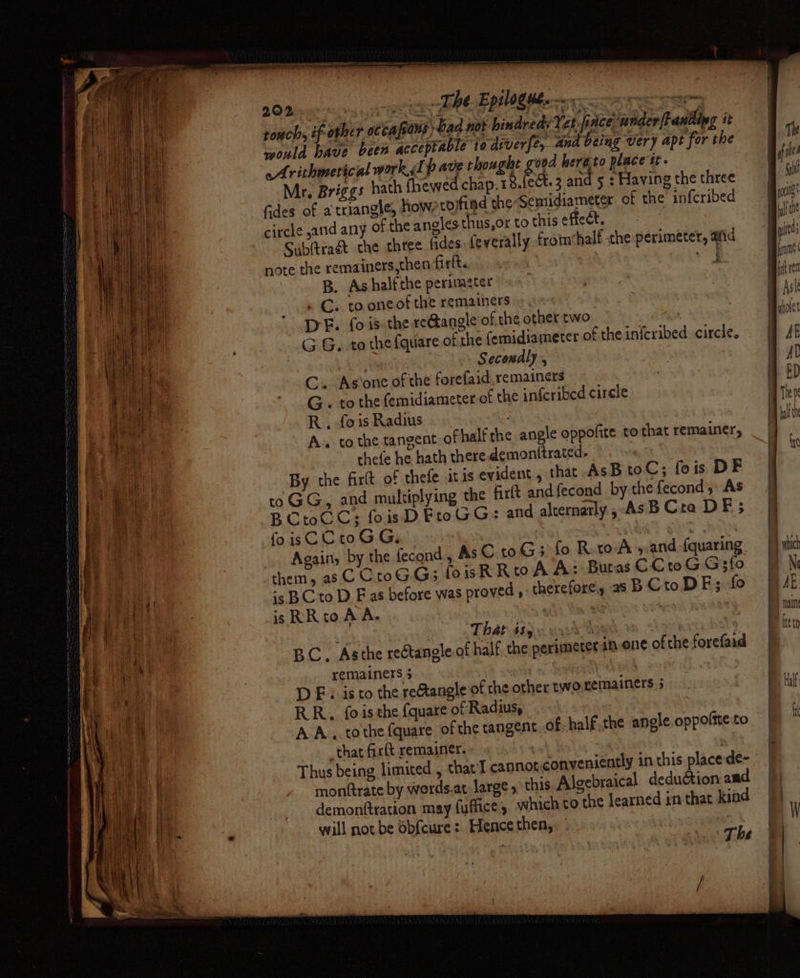 202 The Epilogue.
touch, if other occasions had not hindred; Yet since understanding it
would have been acceptable to diverse, and being very apt for the
Arithmetical work, I have thought good hereto place it.
Mr. Briggs hath shewed chap. 18. sect. 3 and 5: Having the three
sides of a triangle, how to find the Semidiameter of the inscribed
circle, and any of the angles thus, or to this effect.
Subſtract the three ſides ſeverally from half the perimeter, and
note the remainers, then firſt.
B. As half the perimeter
C. to one of the remainers
DF. ſo is the rectangle of the other two
GG. to the ſquare of the ſemidiameter of the inſcribed circle.
Secondly,
C. As one of the foreſaid remainers
G. to the ſemidiameter of the inſcribed circle
R. ſo is Radius
A. to the tangent of half the angle oppoſite to that remainer,
theſe he hath there demonſtrated.
By the firſt of theſe it is evident, that As B to C; ſo is DF
to GG, and multiplying the firſt and ſecond by the ſecond, As
BC to CC; ſo is DF to GG: and alternatly, As BC to DF;
ſo is CC to GG.
Again, by the ſecond, As C to G; ſo R to A, and ſquaring
them, as CC to GG; ſo is RR to AA: But as CC to GG; ſo
is BC to DF as before was proved, therefore, as BC to DF; ſo
is RR to AA.
That is,
BC. As the rectangle of half the perimeter in one of the foreſaid
remainers;
DF: is to the rectangle of the other two remainers;
RR. ſo is the ſquare of Radius,
AA, to the ſquare of the tangent of half the angle oppoſite to
that firſt remainer.
Thus being limited, that I cannot conveniently in this place de-
monſtrate by words at large, this Algebraical deduction and
demonſtration may ſuffice, which to the learned in that kind
will not be obſcure: Hence then,
The